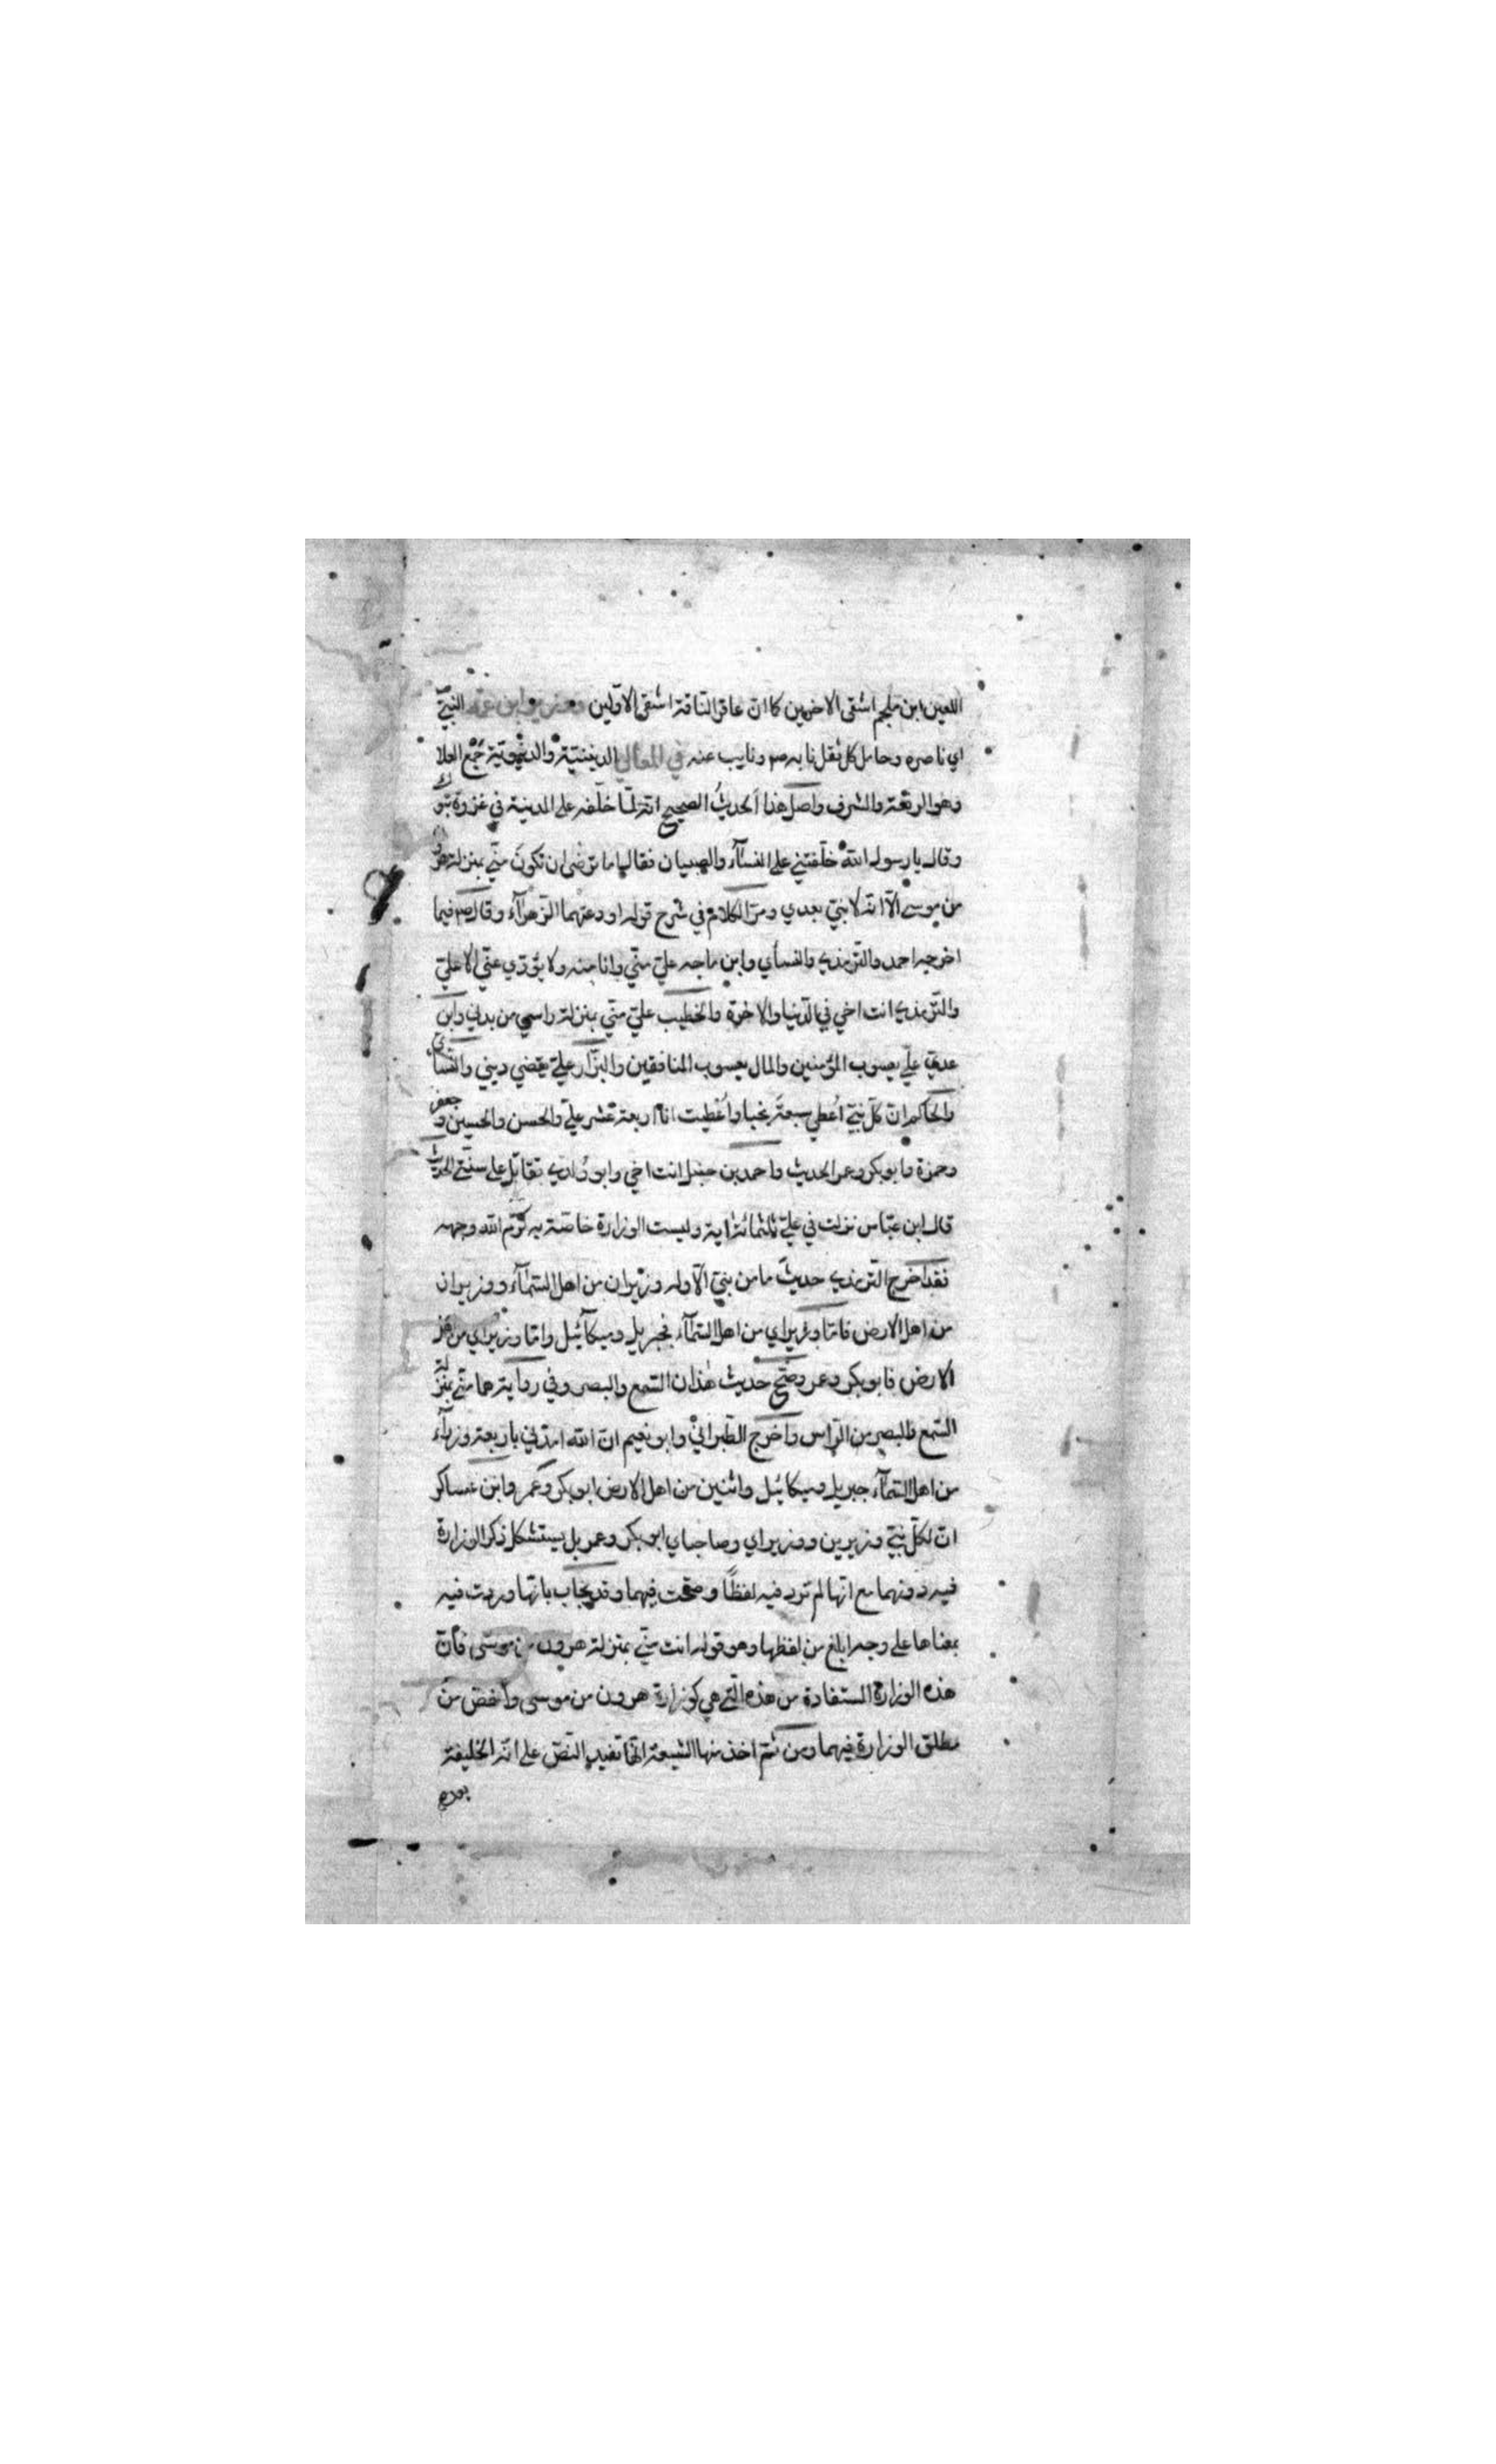 اللعين ابن ملجم اشقى الاخرين كما ان عاقر الناقة اشقى الاولين ووزير ابن عمه النبيّ
اي ناصره وحامل كل ثقل نابه صم ونايب عنه في المعالي الدينية والدنيوية جمع العلا
وهو الرفعة والشرف واصل هذا الحديثُ الصحيح انه لمّا خلّفه على المدينة في غزوة تبوك
وقال يا رسول الله خلّفتني على النسآء والصبيان فقال اما ترضى ان تكون منّي بمنزلة هرون
من موسى الّا انه لا نبيّ بعدي ومرّ الكلام في شرح قوله اودعتهما الزهرآء وقال صم فيما
اخرجه احمد والترمذي والنسأي وابن ماجه عليّ منّي وانا منه ولا يؤدّي عنّي الا عليّ
والترمذي انت اخي في الدّنيا والاخرة والخطيب عليّ منّي بمنزلة راسي من بدني وابن
عديّ عليّ يعسوب المؤمنين والمال يعسوب المنافقين والبزّار عليّ يقضي ديني والنسأي
والحاكم انّ كلّ نبيّ اُعطي سبعةَ نجبا واُعْطيت انا اربعة عشر عليّ والحسن والحسين وجعفر
وحمزة وابوبكر وعمر الحديث واحمد بن حنبل انت اخي وابو ولدي تقاتل على سنّتي الحديث
قال ابن عبّاس نزلت في عليّ ثلثمائة اية وليست الوزارة خاصّة به كرّم الله وجهه
فقد اخرج الترمذي حديثَ ما من نبيّ الّا وله وزيران من اهل السّمآء ووزيران
من اهل الارض فامّا وزيراي من اهل السّمآء فجبريل وميكآئيل وامّا وزيراي من اهل
الارض فابوبكر وعمر وصحّ حديث هذان السّمع والبصر وفي رواية هما منّي بمنزلة
السّمع والبصر من الرّاس واخرج الطبرانيّ وابو نعيم انّ الله ايّدني باربعة وزرآء
من اهل السّمآء جبريل وميكائيل واثنين من اهل الارض ابوبكر وعمر وابن عساكر
انّ لكلّ نبيّ وزيرين ووزيراي وصاحباي ابوبكر وعمر بل يستشكل ذكر الوزارة
فيه دونهما مع انّها لم ترد فيه لفظًا وصحّت فيهما وقد يجاب بانّها وردت فيه
بمعناها على وجه ابلغ من لفظها وهو قوله انت منّي بمنزلة هرون من موسى فانّ
هذه الوزارة المستفادة من هذه الّتي هي كوزارة هرون من موسى واخصّ من
مطلق الوزارة فيهما ومن ثمّ اخذ منها الشيعة انّها تفيد النصّ على انّه الخليفة
بعده